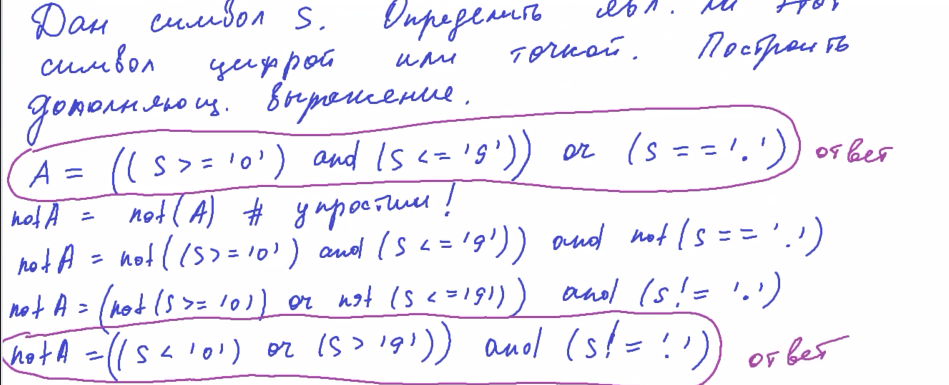 Дан символ S. Определить явл. ли этот
символ цифрой или точкой. Построить
дополняющ. выражение.
A = ((S >= '0') and (S <= '9')) or (S == '.') ответ
notA = not(A) # упростим!
notA = not((S >= '0') and (S <= '9')) and not(S == '.')
notA = (not(S >= '0') or not(S <= '9')) and (S != '.')
notA = ((S < '0') or (S > '9')) and (S != '.') ответ